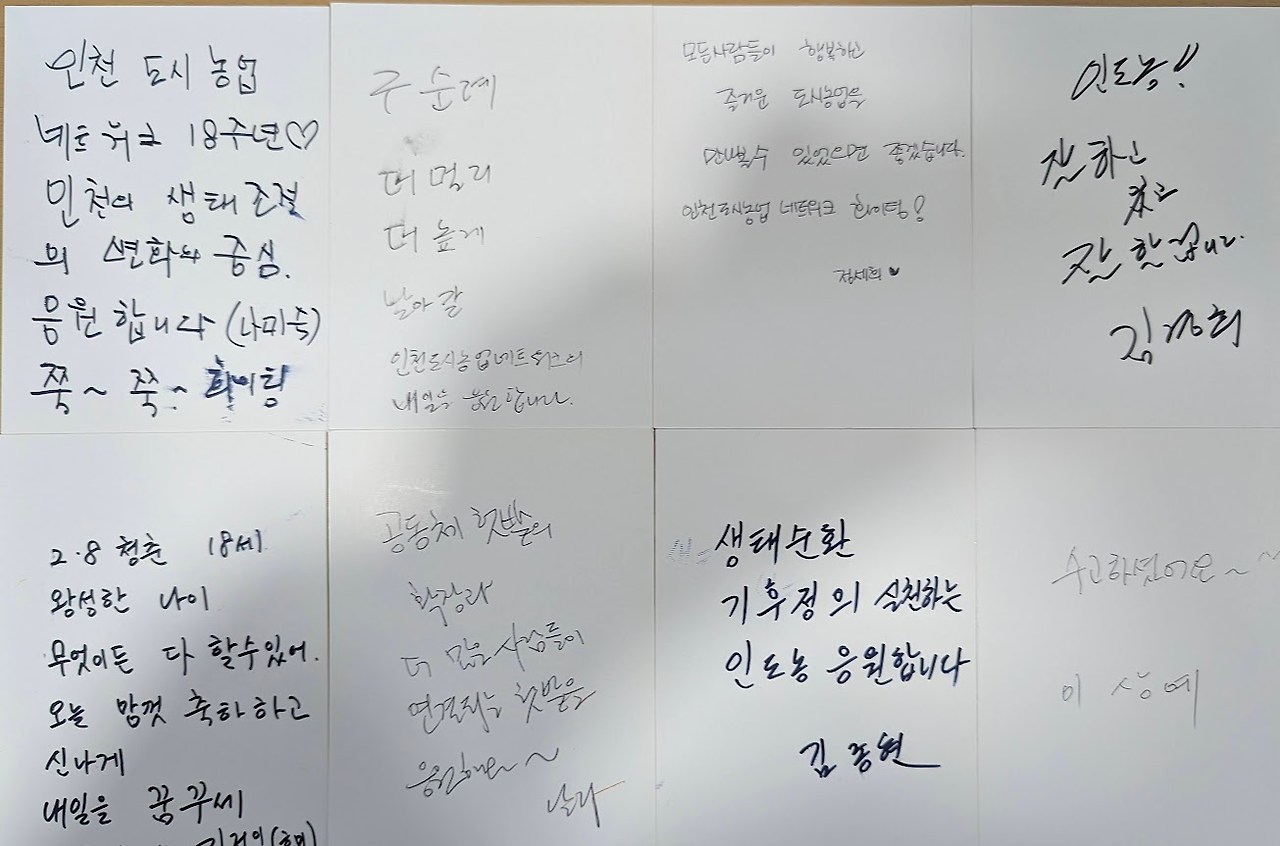 인천 도시 농업
네트워크 18주년♡
인천의 생태 조절
의 변화와 중심.
응원합니다 (나미숙)
쭉~ 쭉~ 화이팅
구순례
더 멀리
더 높게
날아갈
인천도시농업네트워크의
내일을 응원합니다.
모든사람들이 행복하고
즐거운 도시농업을
만나볼수 있었으면 좋겠습니다.
인천도시농업 네트워크 화이팅!
정세희 ♥
인도농!!
잘하고
있고
잘 할겁니다.
2·8 청춘 18세
왕성한 나이
무엇이든 다 할수있어.
오늘 맘껏 축하하고
신나게
내일을 꿈꾸세
공동체 텃밭의
확장과
더 많은 사람들이
연결되는 텃밭을
응원해요~~
생태순환
기후정의 실천하는
인도농 응원합니다
김종현
수고하셨어요~~
이상예